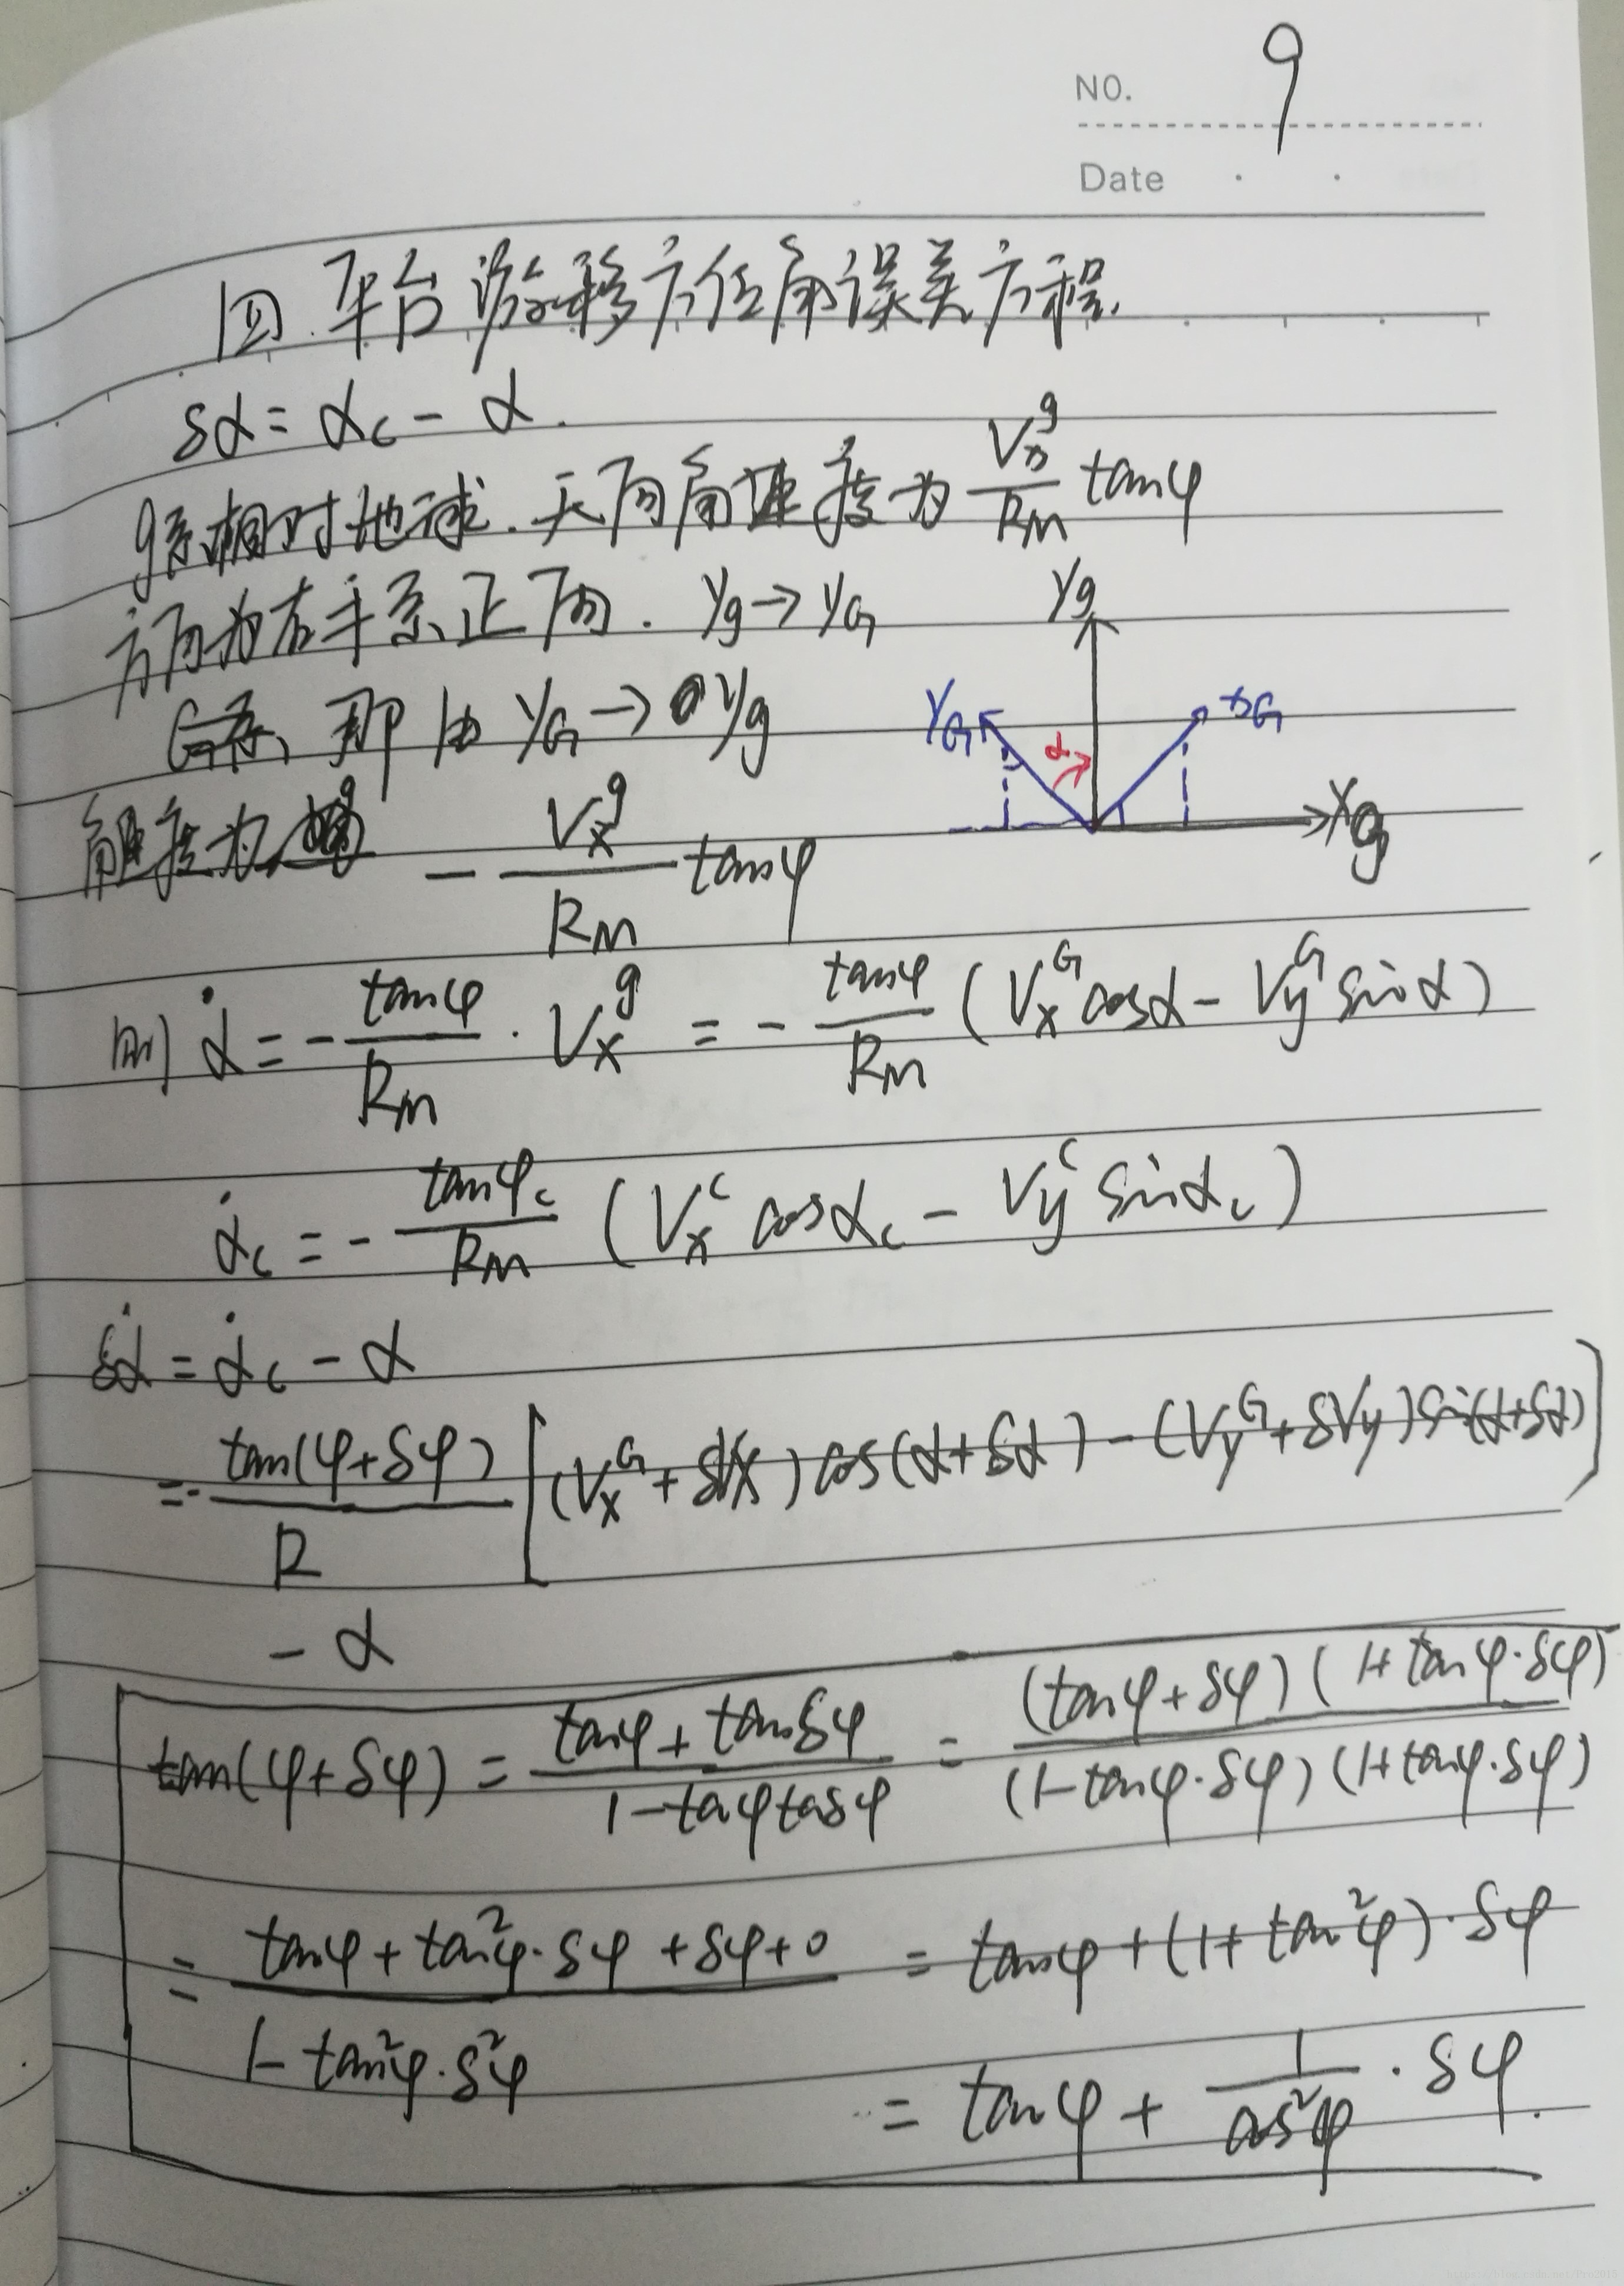 NO. 9
Date . .
四. 平台游移方位角误差方程.
δα = αc - α.
g系相对地球. 天向角速度为 Vx^g/RM tanφ
方向为右手系正向. yg→yG
G系, 即由 yG→yg
角速度为 - Vx^g/RM tanφ
yg
yG
α
xG
xg
则 α̇ = - tanφ/RM · Vx^g = - tanφ/RM (Vx^G cosα - Vy^G sinα)
α̇c = - tanφc/RM (Vx^c cosαc - Vy^c sinαc)
δα̇ = α̇c - α
= - tan(φ+δφ)/R [(Vx^G + δVx) cos(α+δα) - (Vy^G + δVy) sin(α+δα)]
- α
tan(φ+δφ) = (tanφ + tanδφ)/(1-taφtaδφ) = (tanφ+δφ)(1+tanφ·δφ)/(1-tanφ·δφ)(1+tanφ·δφ)
= (tanφ + tan²φ·δφ + δφ + 0)/(1-tan²φ·δ²φ) = tanφ + (1+tan²φ)·δφ
= tanφ + 1/cos²φ · δφ.